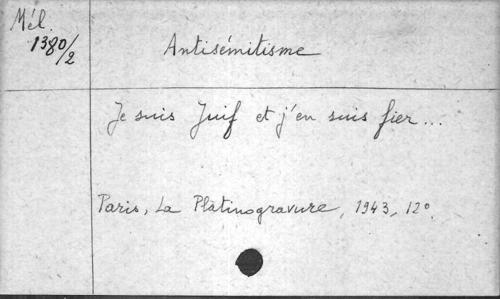 Mél.
1380/2
Antisémitisme
Je suis Juif et j'en suis fier...
Paris, La Platinogravure, 1943, 12°.